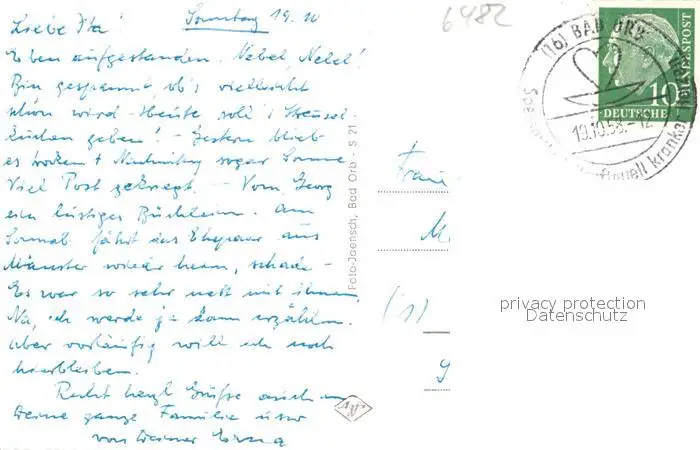 Liebe Ita! Sonntag 19.10
Eben aufgestanden. Nebel, Nebel!
Bin gespannt ob's vielleicht
schön wird – Heute soll's Streusel-
kuchen geben! – Gestern blieb
es trocken + Nachmittag sogar Sonne
Viel Post gekriegt. – Von Georg
ein lustiges Büchlein. Am
Sonnab. fährt das Ehepaar aus
Münster wieder heim, schade –
Es war so sehr nett mit ihnen
Na, ich werde ja dann erzählen.
Aber vorläufig will ich noch
hierbleiben.
Recht herzl. Grüße auch an
Deine ganze Familie
von Deiner Erna
Foto-Jaensch, Bad Orb - S 21
6482
(16) BAD ORB
19.10.58.- 12
10
DEUTSCHE
BUNDESPOST
Frau
M
privacy protection
Datenschutz